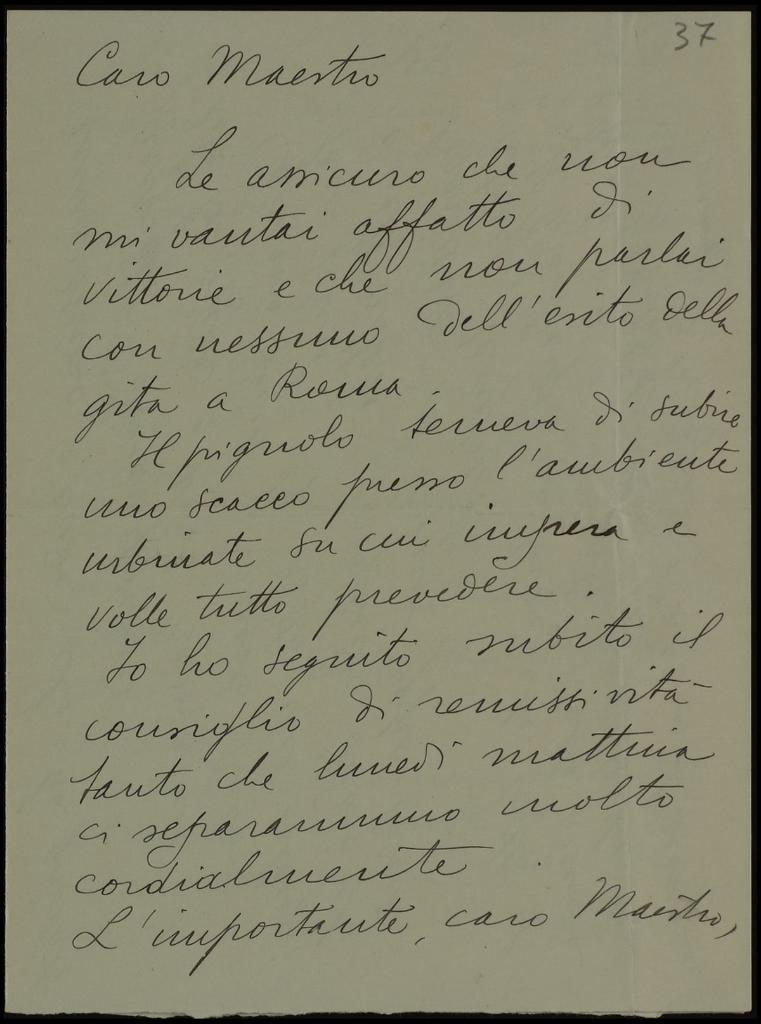 37
Caro Maestro
Le assicuro che non
mi vantai affatto di
vittorie e che non parlai
con nessuno dell'esito della
gita a Roma.
Il pignolo temeva di subire
uno scacco presso l'ambiente
urbinate su cui impera e
volle tutto prevedere.
Io ho seguito subito il
consiglio di remissività
tanto che lunedì mattina
ci separammo molto
cordialmente.
L'importante, caro Maestro,